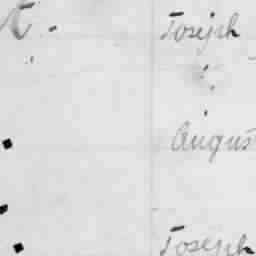 Joseph
August
Joseph